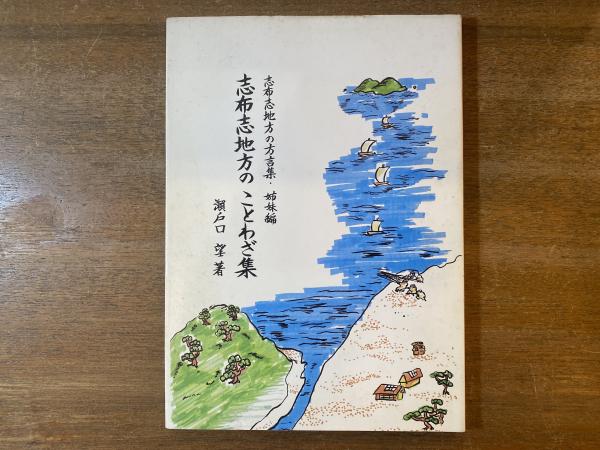 志布志地方の方言集・姉妹編
志布志地方のことわざ集
瀬戸口望著